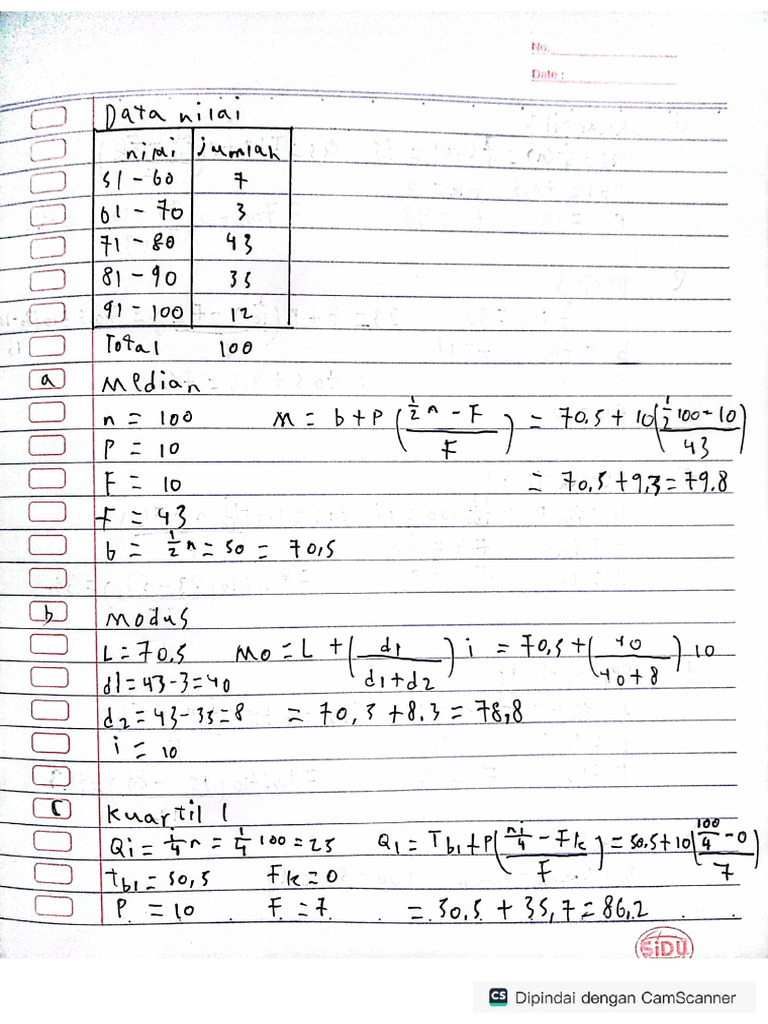 No.
Date :
Data nilai
nilai jumlah
51 - 60 7
61 - 70 3
71 - 80 43
81 - 90 35
91 - 100 12
Total 100
a Median
n = 100 M = b + P (½ n - F / F) = 70.5 + 10 (½ 100 - 10 / 43)
P = 10
F = 10 = 70,5 + 9,3 = 79.8
F = 43
b = ½ n = 50 = 70,5
b Modus
L = 70,5 Mo = L + (d1 / d1 + d2) i = 70,5 + (40 / 40 + 8) 10
d1 = 43 - 3 = 40
d2 = 43 - 35 = 8 = 70,3 + 8.3 = 78,8
i = 10
c Kuartil 1
Qi = ¼ n = ¼ 100 = 25 Q1 = Tb1 + P (ni/4 - Fk / F) = 50.5 + 10 (100/4 - 0 / 7)
Tb1 = 50,5 Fk = 0
P = 10 F = 7 = 50,5 + 35,7 = 86,2
SiDU
CS Dipindai dengan CamScanner